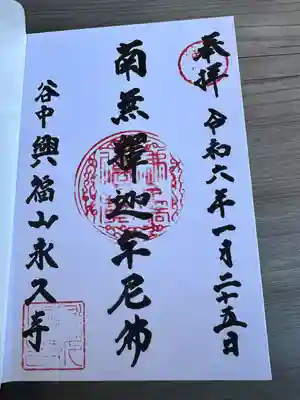 奉拝
令和六年一月二十五日
南無釋迦牟尼佛
谷中興福山永久寺